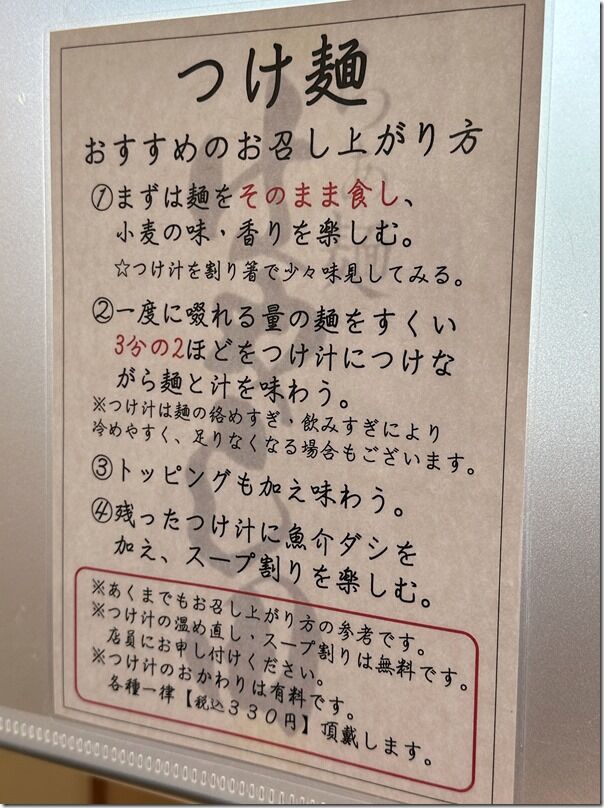 つけ麺
おすすめのお召し上がり方
①まずは麺をそのまま食し、
小麦の味・香りを楽しむ。
☆つけ汁を割り箸で少々味見してみる。
②一度に啜れる量の麺をすくい
3分の2ほどをつけ汁につけな
がら麺と汁を味わう。
※つけ汁は麺の絡めすぎ・飲みすぎにより
冷めやすく、足りなくなる場合もございます。
③トッピングも加え味わう。
④残ったつけ汁に魚介ダシを
加え、スープ割りを楽しむ。
※あくまでもお召し上がり方の参考です。
※つけ汁の温め直し・スープ割りは無料です。
店員にお申し付けください。
※つけ汁のおかわりは有料です。
各種一律【税込３３０円】頂戴します。